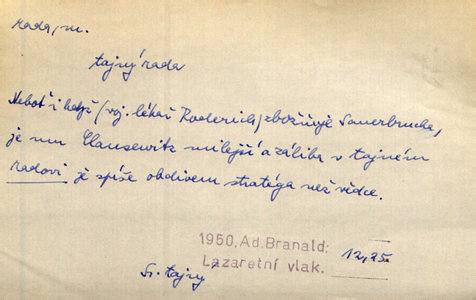 rada, m.
tajný rada
Neboť i když (voj. lékař Roderich) zbožňuje Sauerbrucha,
je mu Clausewitz milejší a záliba v tajném
radovi je spíše obdivem stratéga než vědce.
1950, Ad. Branald:
Lazaretní vlak.
12,25
Sr. tajný